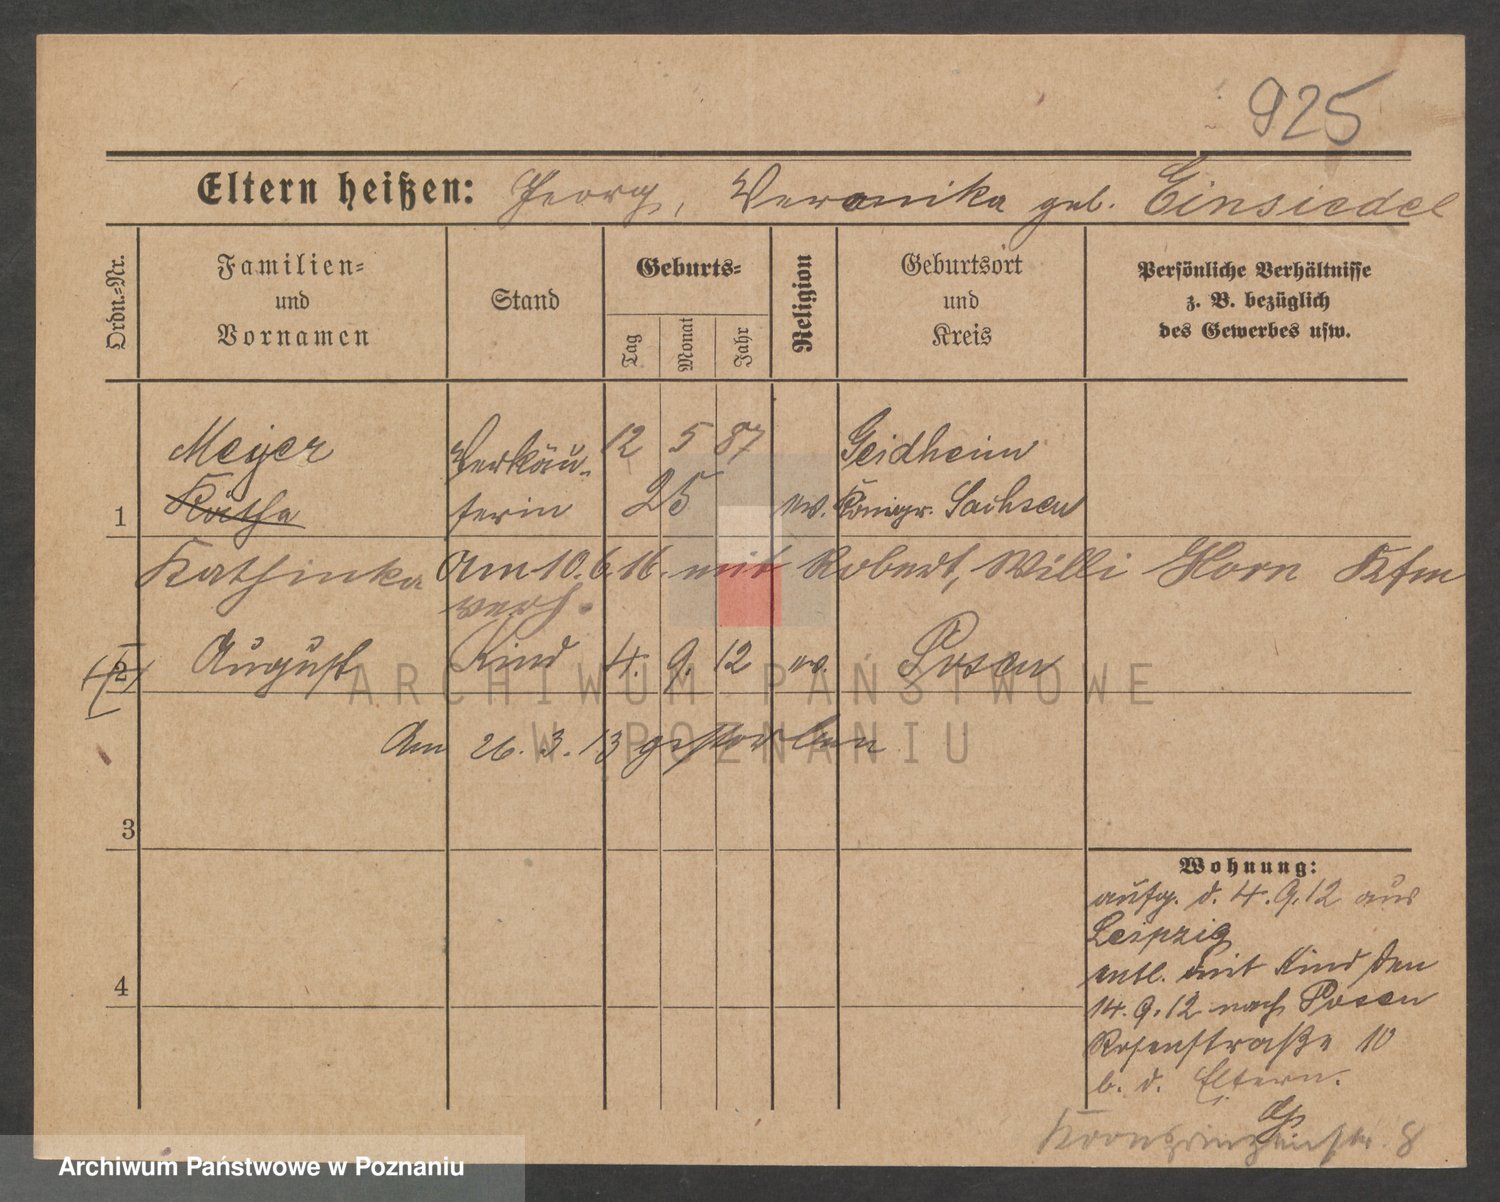 925
Eltern heißen: Georg, Veronika geb. Einsiedel
Ordn.-Nr.
Familien-
und
Vornamen
Stand
Geburts-
Tag
Monat
Jahr
Religion
Geburtsort
und
Kreis
Persönliche Verhältnisse
z. B. bezüglich
des Gewerbes usw.
Meyer Verkäu- 12 5 87 Geidheim
1 Käthe ferin 25 ev. Königr. Sachsen
Kathinka Am 10.6.16. mit Robert, Willi Horn Kfm
verh.
2 August Kind 4. 9. 12 ev. Posen
Am 26. 3. 13 gestorben
3
4
Wohnung:
aufg. d. 4.9.12 aus
Leipzig
entl. mit Kind den
14.9.12 nach Posen
Rosenstraße 10
b. d. Eltern.
Kronprinzenstr. 8
ARCHIWUM PAŃSTWOWE
W POZNANIU
Archiwum Państwowe w Poznaniu